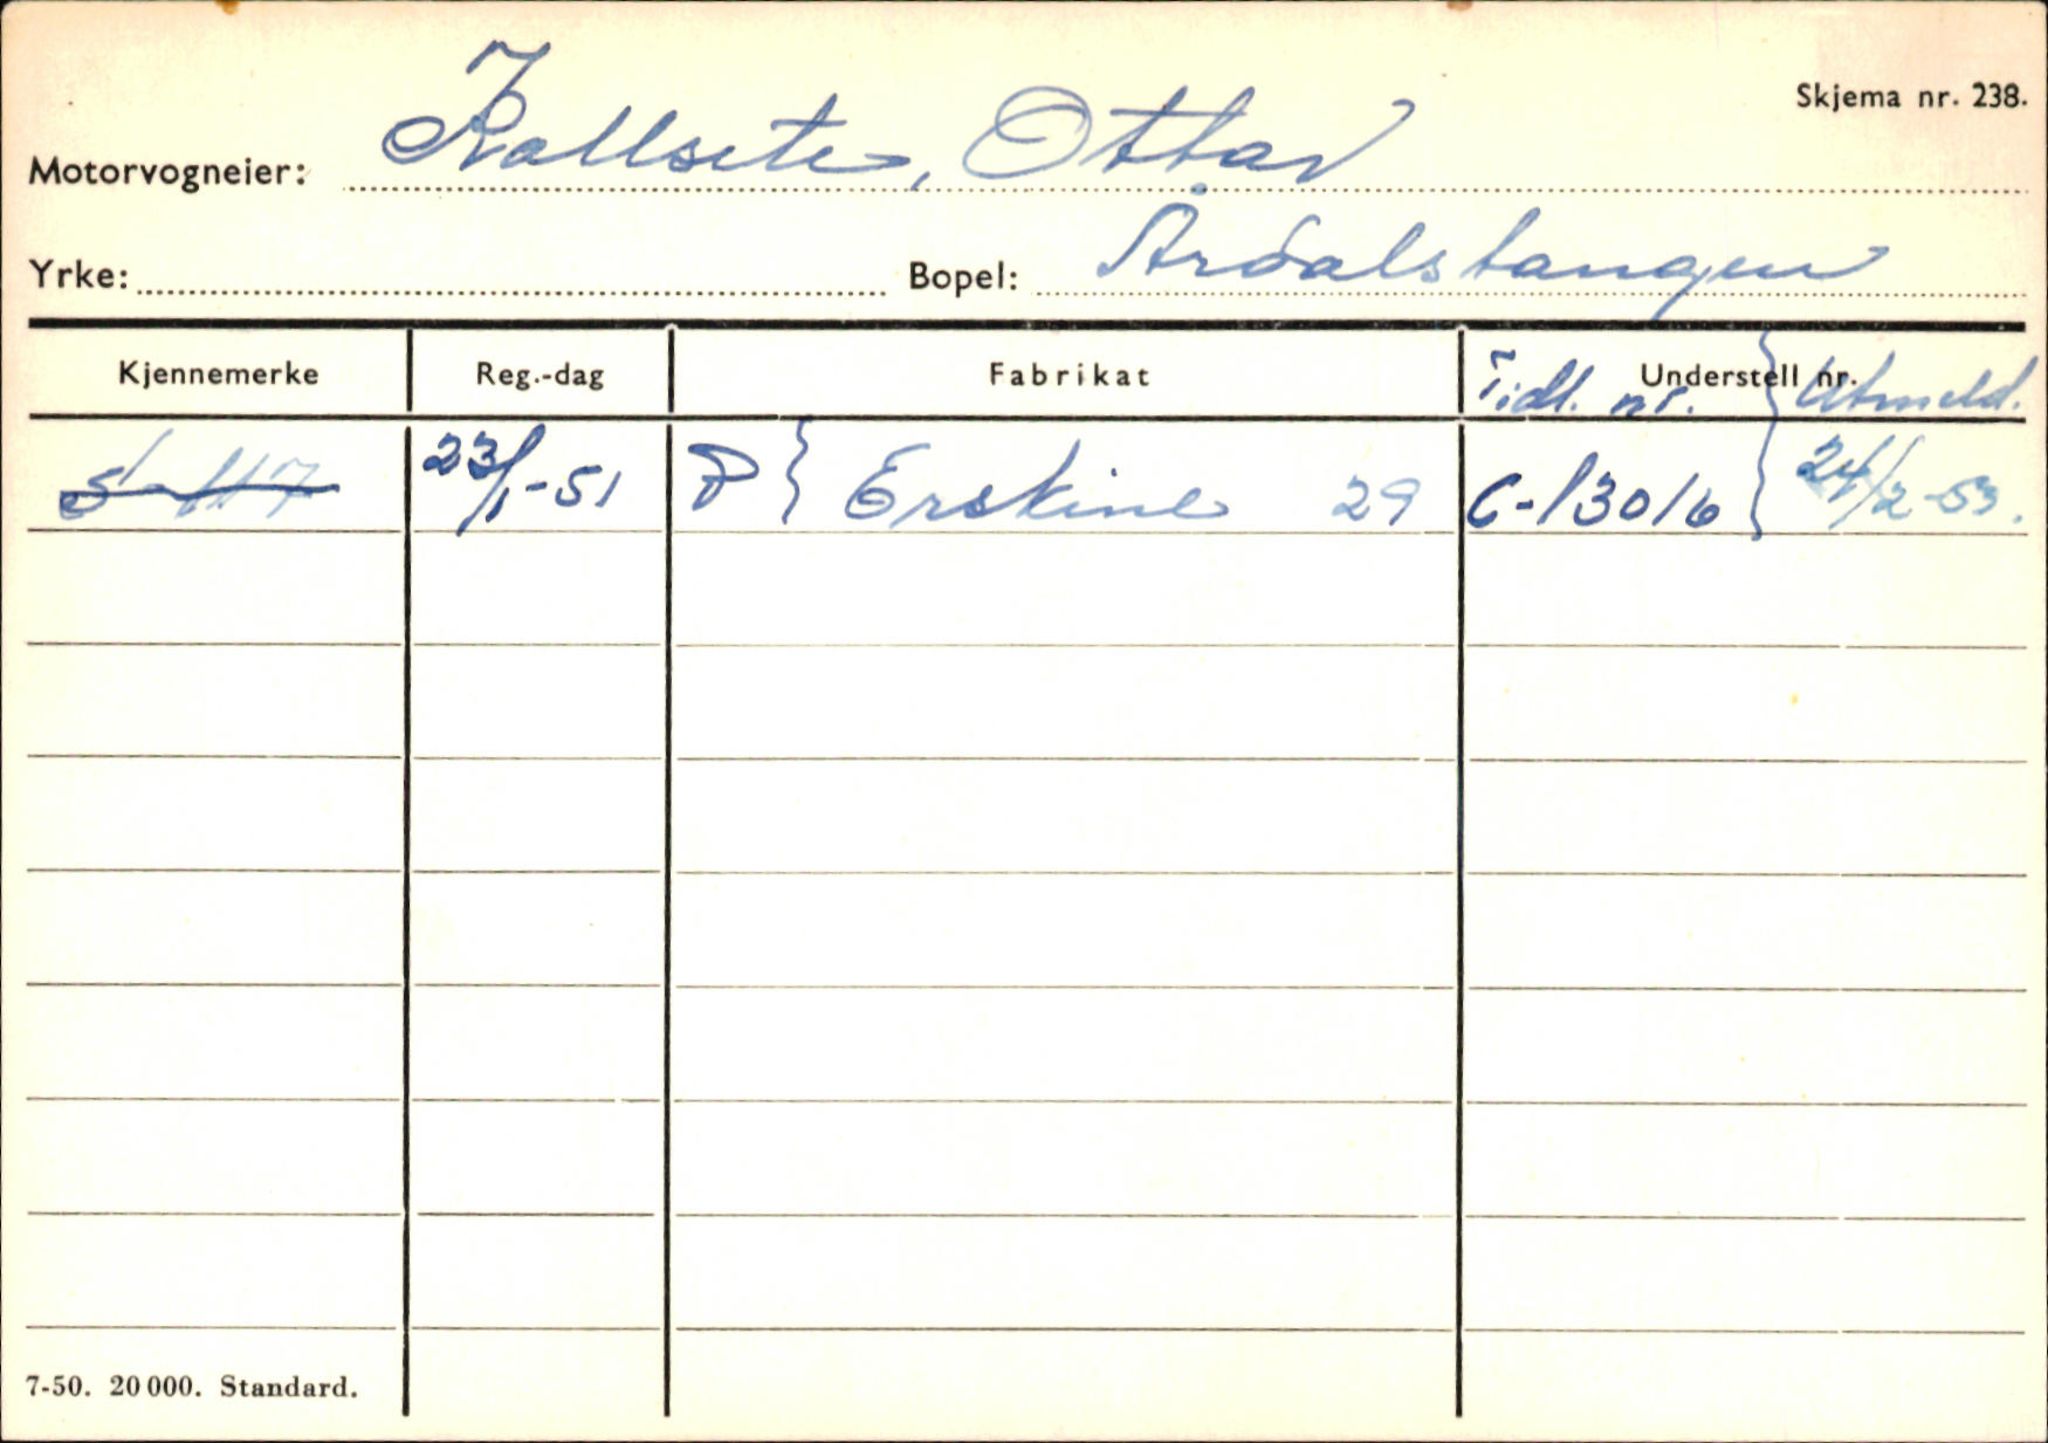 Skjema nr. 238.
Motorvogneier: Kallsete, Ottar
Yrke: Bopel: Årdalstangen
Kjennemerke Reg.-dag Fabrikat Understell nr.
Tidl. nr. } Utmeld.
S-117 23/1-51 P } Erskine 29 C-13016 } 24/2-53.
7-50. 20 000. Standard.